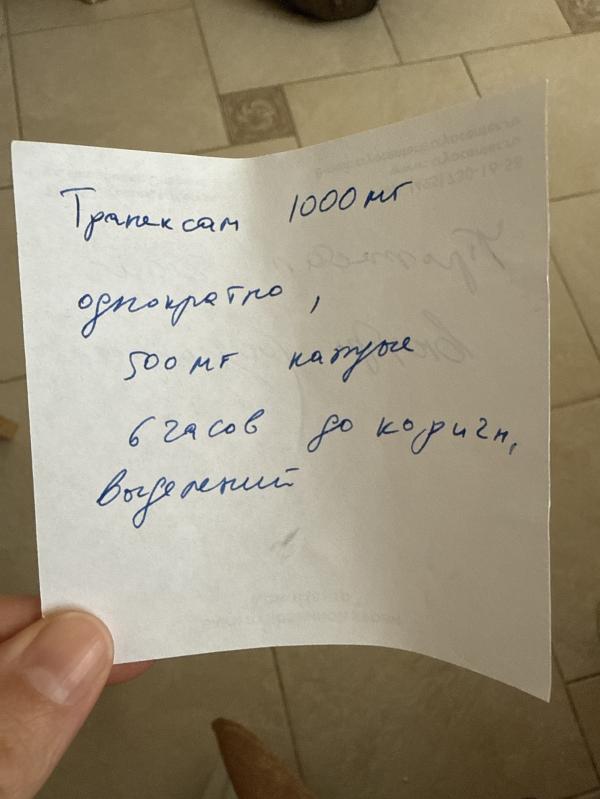 Транексам 1000 мг
однократно,
500 мг каждые
6 часов до коричн,
выделений